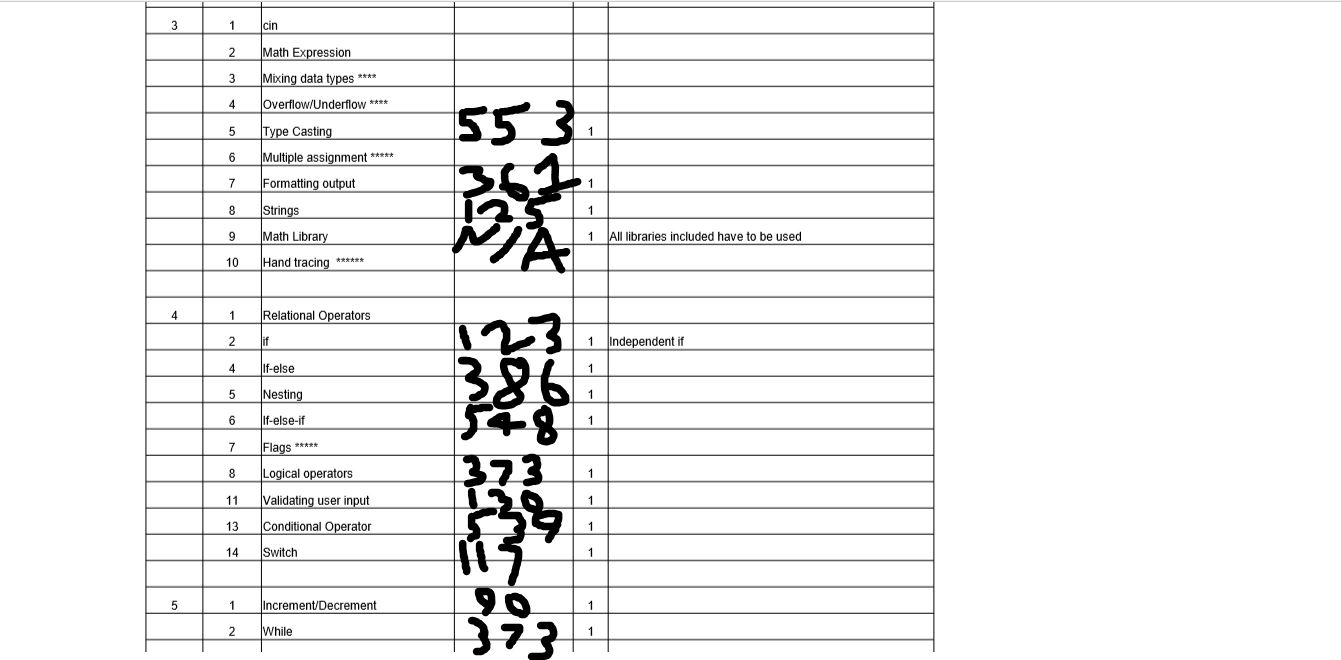 3 1 cin
2 Math Expression
3 Mixing data types ****
4 Overflow/Underflow ****
5 Type Casting 553 1
6 Multiple assignment *****
7 Formatting output 361 1
8 Strings 125 1
9 Math Library N/A 1 All libraries included have to be used
10 Hand tracing ******
4 1 Relational Operators
2 if 123 1 Independent if
4 If-else 1
5 Nesting 386 1
6 If-else-if 548 1
7 Flags *****
8 Logical operators 373 1
11 Validating user input 130 1
13 Conditional Operator 539 1
14 Switch 117 1
5 1 Increment/Decrement 90 1
2 While 373 1